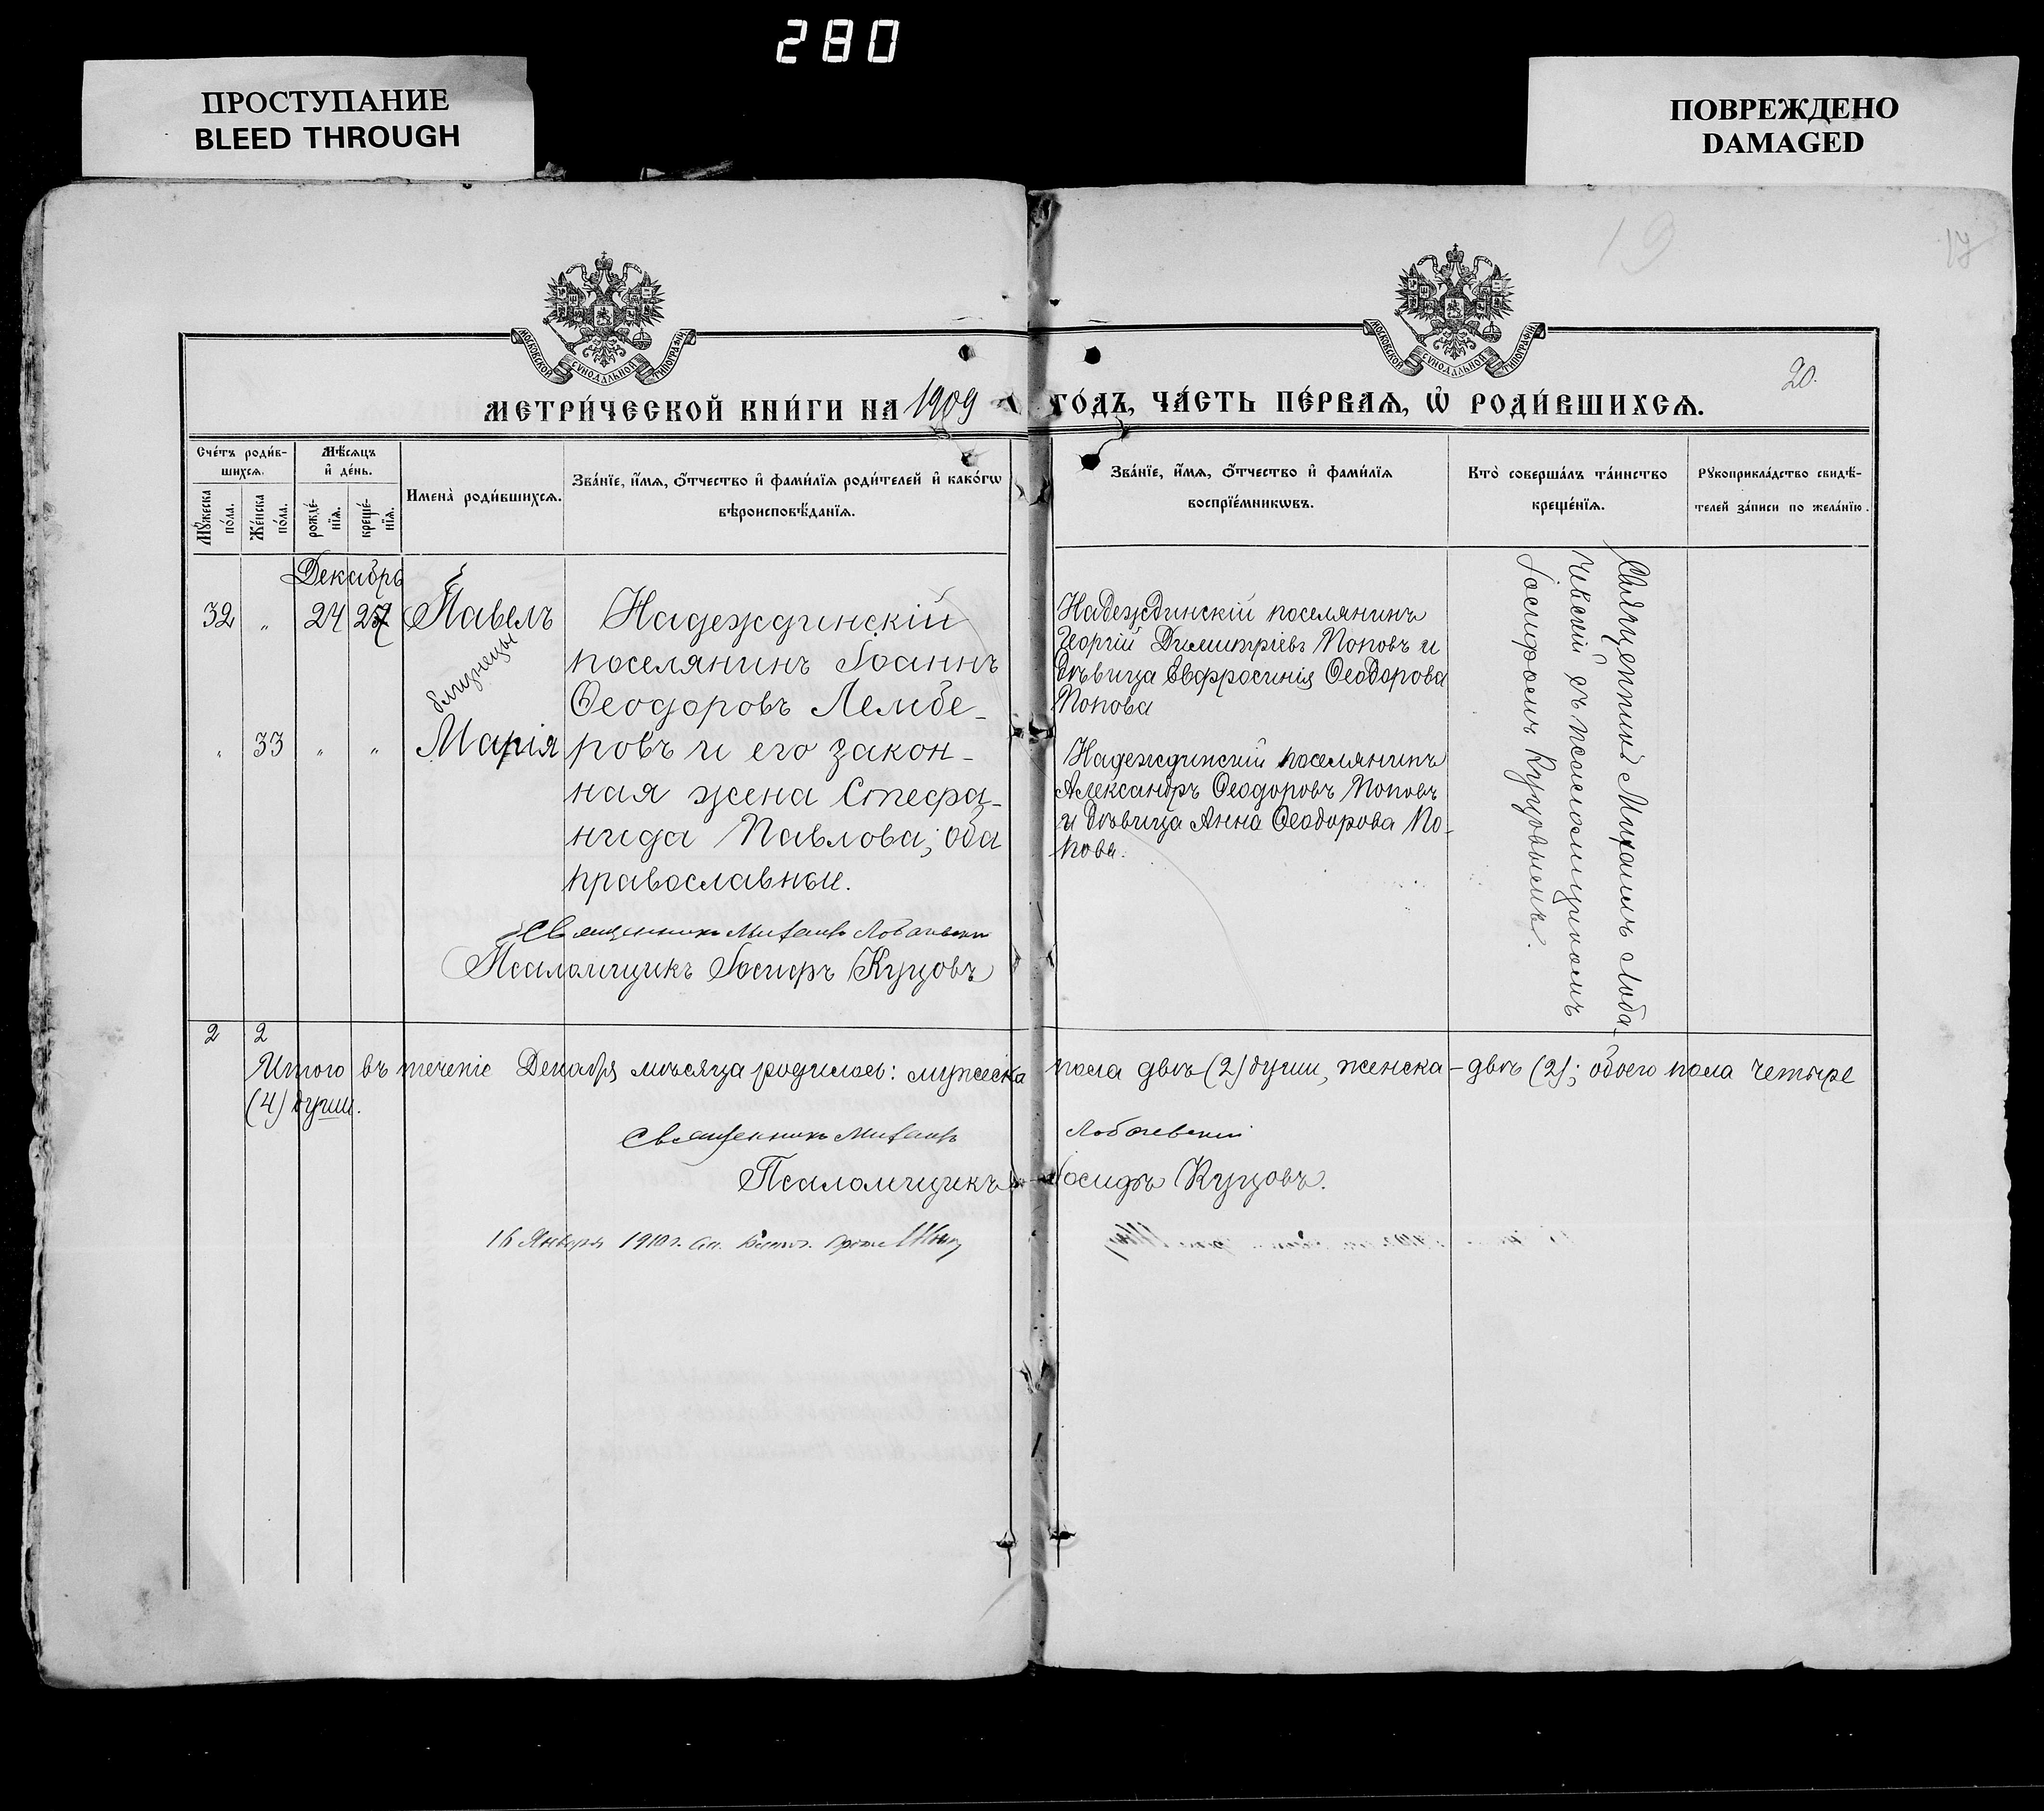 280
ПРОСТУПАНИЕ
BLEED THROUGH
ПОВРЕЖДЕНО
DAMAGED
19
20.
МОСКОВСКОЙ СѴНОДАЛЬНОЙ ТИПОГРАФІИ
МОСКОВСКОЙ СѴНОДАЛЬНОЙ ТИПОГРАФІИ
МЕТРИ́ЧЕСКОЙ КНИ́ГИ НА 1909 ГО́ДЪ, ЧА́СТЬ ПЕ́РВАЯ, Ѡ҆ РОДИ́ВШИХСЯ.
Сче́тъ роди́в-
шихся.
Мꙋ́жеска по́ла.
Же́нска по́ла.
Мѣ́сяцъ
и҆ де́нь.
рожде́-
нїя.
креще́-
нїя.
Имена̀ роди́вшихся.
Зва́нїе, и҆́мя, ѻ҆́тчество и҆ фами́лїя роди́телей и҆ како́гѡ
вѣроисповѣ́данїя.
Зва́нїе, и҆́мя, ѻ҆́тчество и҆ фами́лїя
воспрїе́мникѡвъ.
Кто̀ соверша́лъ та́инство
креще́нїя.
Рꙋкоприкла́дство свидѣ́-
телей за́писи по жела́нїю.
Декабрь
32 " 24 25 Павелъ
близнецы
" 33 " " Марія
Надеждинскій
поселянинъ Іоаннъ
Ѳеодоровъ Лембе-
ровъ и его закон-
ная жена Стефа-
нида Павлова; оба
православные.
Надеждинскій поселянинъ
Георгій Димитріевъ Поповъ и
дѣвица Евфросинія Ѳеодорова
Попова
Надеждинскій поселянинъ
Александръ Ѳеодоровъ Поповъ
и дѣвица Анна Ѳеодорова По-
пова.
Священникъ Михаилъ Лоба-
чевскій съ псаломщикомъ
Іосифомъ Куцовымъ.
Священникъ Михаилъ Лобачевскій
Псаломщикъ Іосифъ Куцовъ
2 2
Итого въ теченіе Декабря мѣсяца родилось: мужеска пола двѣ (2) души, женска - двѣ (2); обоего пола четыре
(4) души.
Священникъ Михаилъ Лобачевскій
Псаломщикъ Іосифъ Куцовъ.
16 Января 1910 г.